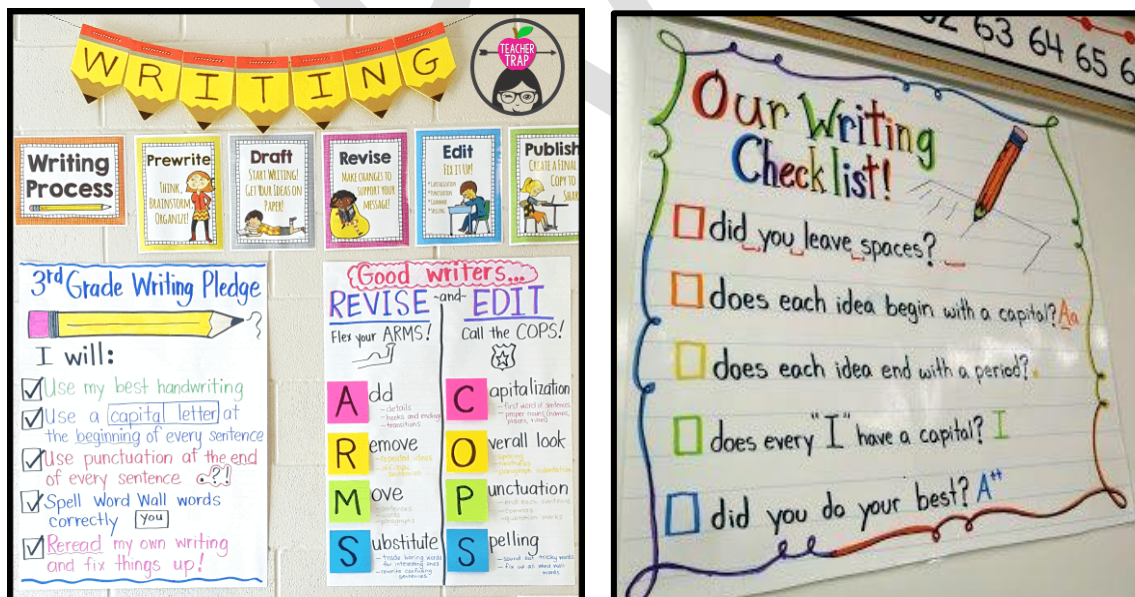 WRITING
TEACHER
TRAP
Writing
Process
Prewrite
THINK,
BRAINSTORM,
ORGANIZE!
Draft
START WRITING!
GET YOUR IDEAS ON
PAPER!
Revise
MAKE CHANGES TO
SUPPORT YOUR
MESSAGE!
Edit
FIX IT UP!
* CAPITALIZATION
* PUNCTUATION
* GRAMMAR
* SPELLING
Publish
CREATE A FINAL
COPY TO
SHAR
3rd Grade Writing Pledge
I will:
Use my best handwriting
Use a capital letter at
the beginning of every sentence
Use punctuation at the end
of every sentence .?!
Spell Word Wall words
correctly you
Reread my own writing
and fix things up!
Good writers...
REVISE -and- EDIT
Flex your ARMS!
Add
- details
- hooks and endings
- transitions
Remove
- repeated ideas
Move
- sentences
- words
- paragraphs
Substitute
- trade boring words
for interesting ones
- rewrite confusing
sentences
Call the COPS!
Capitalization
- first word of sentences
- proper nouns (names,
places, titles)
Overall look
- spacing
- neatness
- paragraph indentation
Punctuation
- end each sentence
- commas
- quotation marks
Spelling
- sound out tricky words
- fix up all word wall
words
62 63 64 65 6
Our Writing
Checklist!
did you leave spaces?
does each idea begin with a capital? Aa
does each idea end with a period? .
does every "I" have a capital? I
did you do your best? A++